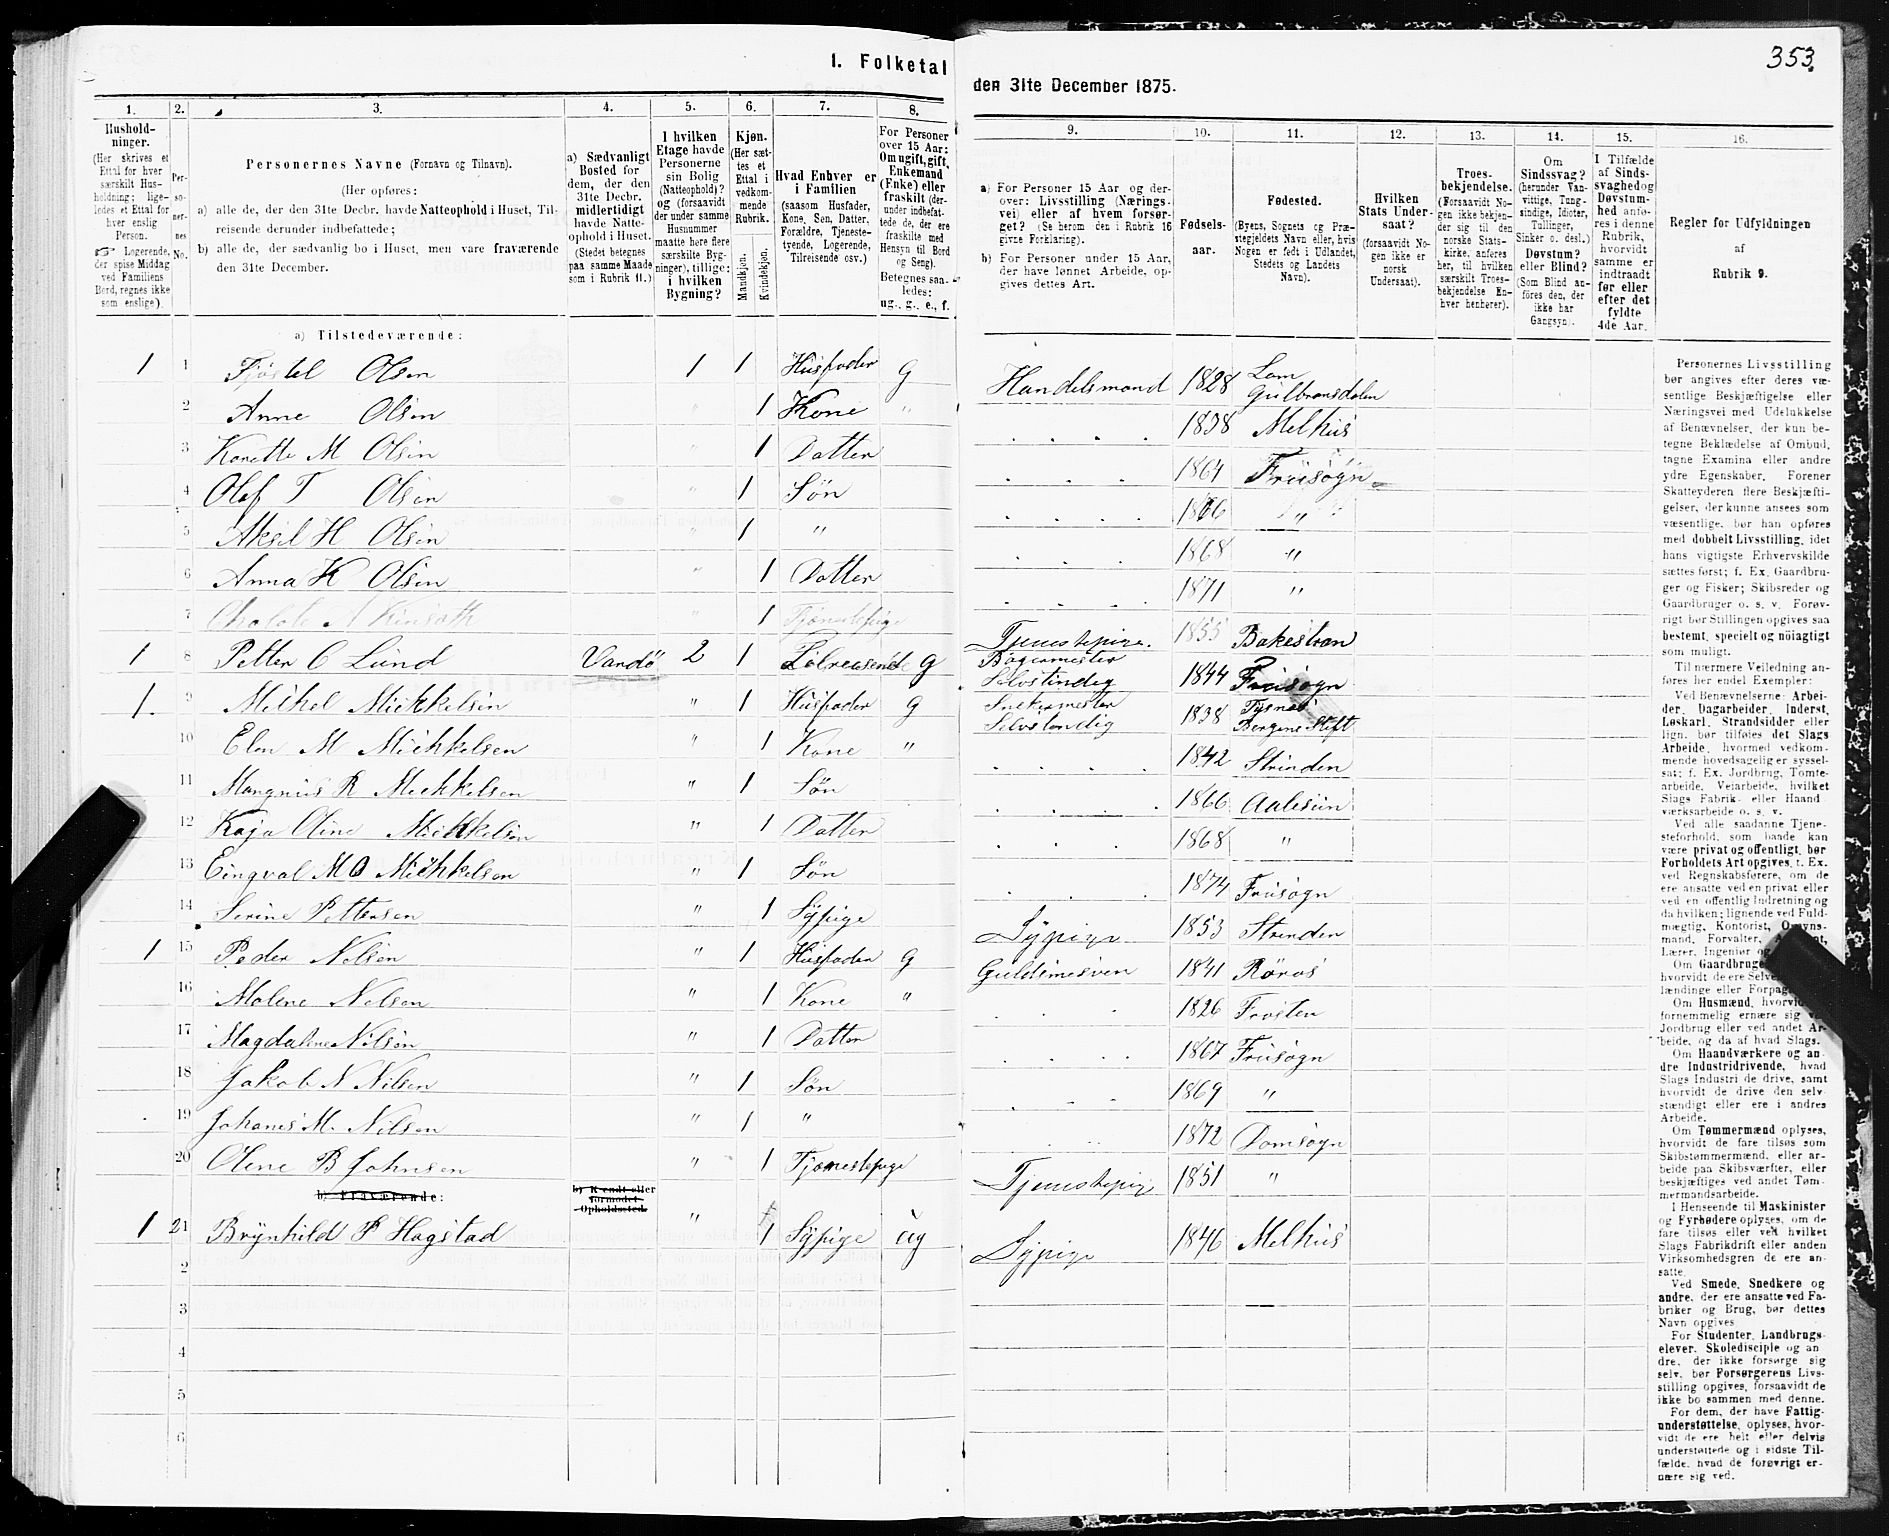 353.
1. Folketal den 31te December 1875.
1. 2. 3. 4. 5. 6. 7. 8. 9. 10. 11. 12. 13. 14. 15. 16.
Hushold-
ninger.
(Her skrives et
Ettal for hver
særskilt Hus-
holdning; lige-
ledes et Ettal for
hver enslig
Person.
☞ Logerende,
der spise Middag
ved Familiens
Bord, regnes ikke
som enslige).
Per-
so-
ner-
nes
No.
Personernes Navne (Fornavn og Tilnavn).
(Her opføres:
a) alle de, der den 31te Decbr. havde Natteophold i Huset, Til-
reisende derunder indbefattede;
b) alle de, der sædvanlig bo i Huset, men vare fraværende
den 31te December.
a) Sædvanligt
Bosted for
dem, der den
31te Decbr.
midlertidigt
havde Natte-
ophold i Huset.
(Stedet betegnes
paa samme Maade
som i Rubrik 11.)
I hvilken
Etage havde
Personerne
sin Bolig
(Natteophold)?
og (forsaavidt
der under samme
Husnummer
maatte høre flere
særskilte Byg-
ninger), tillige:
i hvilken
Bygning?
Kjøn.
(Her sæt-
tes et
Ettal i
vedkom-
mende
Rubrik.
Mandkjøn.
Kvindekjøn.
Hvad Enhver er
i Familien
(saasom Husfader,
Kone, Søn, Datter,
Forældre, Tjeneste-
tyende, Logerende,
Tilreisende osv.)
For Personer
over 15 Aar:
Om ugift, gift,
Enkemand
(Enke) eller
fraskilt (der-
under indbefat-
tede de, der ere
fraskilte med
Hensyn til Bord
og Seng).
Betegnes saa-
ledes:
ug., g., e., f.
a) For Personer 15 Aar og der-
over: Livsstilling (Nærings-
vei) eller af hvem forsør-
get? (Se herom den i Rubrik 16
givne Forklaring).
b) For Personer under 15 Aar,
der have lønnet Arbeide, op-
gives dettes Art.
Fødsels-
aar.
Fødested.
(Byens, Sognets og Præ-
stegjeldets Navn eller, hvis
Nogen er født i Udlandet,
Stedets og Landets
Navn).
Hvilken
Stats Under-
saat?
(forsaavidt No-
gen ikke er
norsk
Undersaat).
Troes-
bekjendelse.
(Forsaavidt No-
gen ikke bekjen-
der sig til den
norske Stats-
kirke, anføres
her, til hvilken
særskilt Troes-
bekjendelse En-
hver henhører).
Om
Sindssvag?
(herunder Van-
vittige, Tung-
sindige, Idioter,
Tullinger,
Sinker o. desl.)
Døvstum?
eller Blind?
(Som Blind an-
føres den, der
ikke har
Gangsyn).
I Tilfælde
af Sinds-
svaghed og
Døvstum-
hed anfø-
res i denne
Rubrik,
hvorvidt
samme er
indtraadt
før eller
efter det
fyldte
4de Aar.
Regler for Udfyldningen
af
Rubrik 9.
a) Tilstedeværende:
1 1 Olsen 1 1 Husfader G Handelsmand 1828 Lom Gulbransdalen
2 Anne Olsen " 1 Kone " 1838 Melhus
3 Karette M Olsen " 1 Datter 1864 Frusogn
4 Olaf T Olsen " 1 Søn 1866 "
5 Aksel H Olsen " 1 " 1868 "
6 Anna K Olsen " 1 Datter 1871 "
7 " 1 Tjenestepige Tjenestepige. 1855
1 8 Petter C Lund Vardö 2 1 G Bagermester Selvstindig 1844 Frusogn
1. 9 Mikkelsen " 1 Husfader G Snekermester Selvstandig 1838 Tysnæs Bergens Stift
10 Elen M Mikkelsen " 1 Kone " 1842 Strinden
11 Mangnus R Mikkelsen " 1 Søn 1866 Aalesun
12 Kaja Oline Mikkelsen " 1 Datter 1868 "
13 Eingval M O Mikkelsen " 1 Søn 1874 Frusogn
14 Serine Pettersen " 1 Sÿpige Sÿpige 1853 Strinden
1 15 Peder Nilsen " 1 Husfader G Guldsmesven 1841 Röros
16 Malene Nilsen " 1 Kone " 1826 Frosten
17 Magdaline Nilsen " 1 Datter 1867 Frusogn
18 Jakob N Nilsen " 1 Søn 1869 "
19 Johanes M. Nilsen " 1 " 1872 Domsogn
20 Olene B Johnsen " 1 Tjenestepige Tjenestepig 1851 "
b) Fraværende: b) Kjendt eller formodet Opholdssted.
1 21 Brÿnhild P Hagstad " 1 Sÿpige ug Sÿpige 1846 Melhus
2
3
4
5
6
Personernes Livsstilling
bør angives efter deres væ-
sentlige Beskjæftigelse eller
Næringsvei med Udelukkelse
af Benævnelser, der kun be-
tegne Beklædelse af Ombud,
tagne Examina eller andre
ydre Egenskaber. Forener
Skatteyderen flere Beskjæfti-
gelser, der kunne ansees som
væsentlige, bør han opføres
med dobbelt Livsstilling, idet
hans vigtigste Erhvervskilde
sættes først; f. Ex. Gaardbru-
ger og Fisker; Skibsreder og
Gaardbruger o. s. v. Forøv-
rigt bør Stillingen opgives saa
bestemt, specielt og nöiagtigt
som muligt.
Til nærmere Veiledning an-
føres her endel Exempler:
Ved Benævnelserne: Arbei-
der, Dagarbeider, Inderst,
Løskarl, Strandsidder eller
lign. bør tilføies det Slags
Arbeide, hvormed vedkom-
mende hovedsagelig er syssel-
sat; f. Ex. Jordbrug, Tomte-
arbeide, Veiarbeide, hvilket
Slags Fabrik- eller Haand-
værksarbeide o. s. v.
Ved alle saadanne Tjene-
steforhold, som baade kan
være privat og offentligt, bør
Forholdets Art opgives, t. Ex.
ved Regnskabsførere, om de
ere ansatte ved en privat eller
ved en offentlig Indretning og
da hvilken; lignende ved Fuld-
mægtig, Kontorist, Opsyns-
mand, Forvalter,
Lærer, Ingeniør og
Om Gaardbruge
hvorvidt de ere Selve
lændinge eller Forpag
Om Husmænd, hvorvid
fornemmelig ernære sig ve
Jordbrug eller ved andet Ar-
beide, og da af hvad Slags.
Om Haandværkere og an-
dre Industridrivende, hvad
Slags Industri de drive, samt
hvorvidt de drive den selv-
stændigt eller ere i andres
Arbeide.
Om Tømmermænd oplyses,
hvorvidt de fare tilsøs som
Skibstømmermænd, eller ar-
beide paa Skibsværfter, eller
beskjæftiges ved andet Tøm-
mermandsarbeide.
I Henseende til Maskinister
og Fyrbødere oplyses, om de
fare tilsøs eller ved hvilket
Slags Fabrikdrift eller anden
Virksomhedsgren de ere an-
satte.
Ved Smede, Snedkere og
andre, der ere ansatte ved Fa-
briker og Brug, bør dettes
Navn opgives.
For Studenter, Landbrugs-
elever, Skoledisciple og an-
dre, der ikke forsørge sig
selv, bør Forsørgerens Livs-
stilling opgives, forsaavidt de
ikke bo sammen med denne.
For dem, der have Fattig-
understøttelse, oplyses, hvor-
vidt de ere helt eller delvis
understøttede og i sidste Til-
fælde, hvad de forøvrigt er-
nære sig ved.